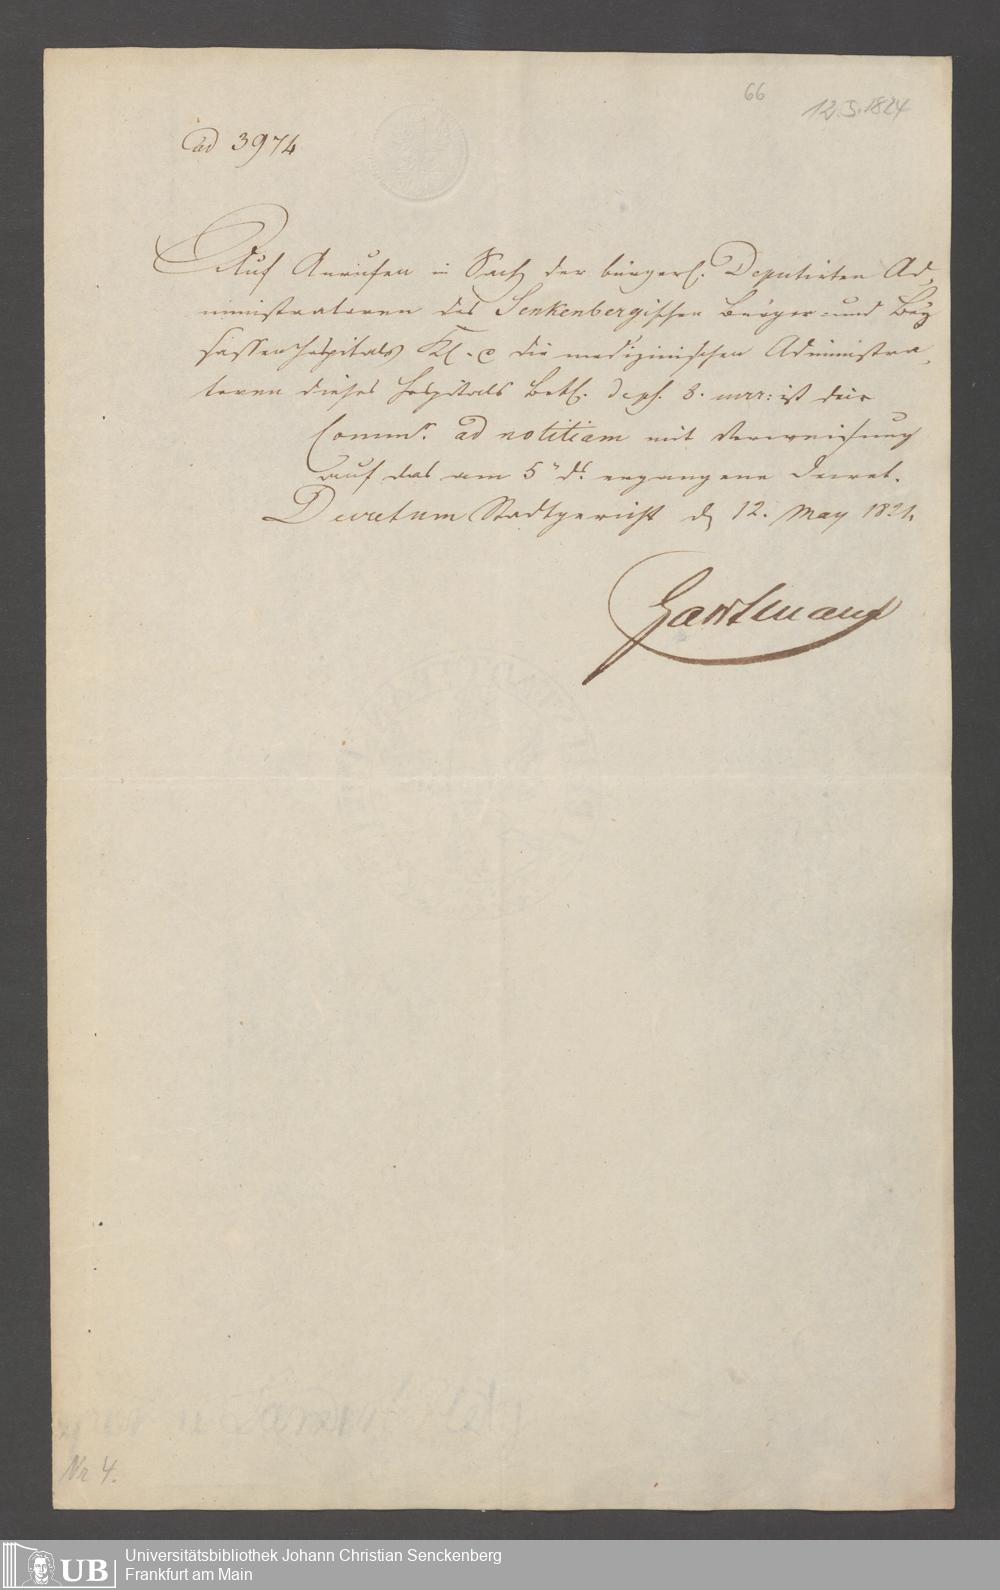 66
12.5.1824
ad 3974
Auf Anrufen in Sach der bürgerl. Deputirten Ad-
ministratoren des Senkenbergischen Bürger- und Bey
sassen Hospitals Kl. c die medizinischen Administra-
toren dieses Hospitals Bekl. deps. 8. ist
Comm. ad notitiam mit Verweisung
auf das am 5n ds ergangene Decret.
Decretum Stadtgericht d 12. May 1824.
Hartmann
Nr 4.
UB
Universitätsbibliothek Johann Christian Senckenberg
Frankfurt am Main